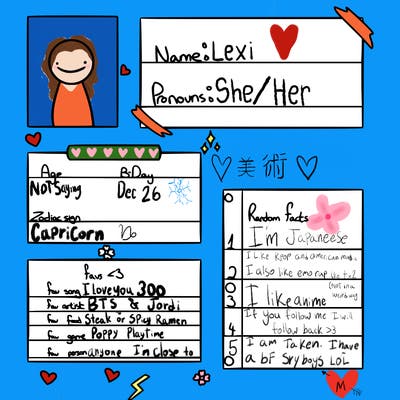 Name: Lexi
Pronouns: She/Her
美術
Age
B-Day
Not Saying
Dec 26
Zodiac sign
Capricorn
favs <3
fav song I love you 300
fav artist BTS & Jordi
fav food Steak or Spicy Ramen
fav game Poppy Playtime
fav person anyone I'm close to
Random Facts
1 I'm Japaneese
I Like Kpop and
2 I also like emo rap
3 I like anime
If you follow me I will
4 follow back >3
5 I am Taken. I have
a bf Sry boys LOL
M